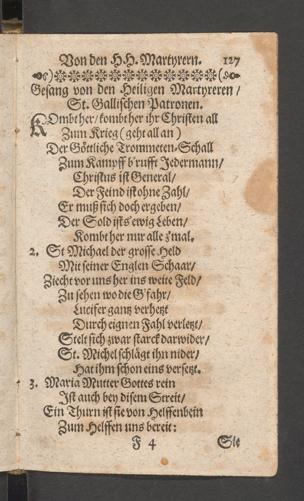 Von den HH. Martyrern. 127
Gesang von den Heiligen Martyreren /
St. Gallischen Patronen.
KOmbt her / kombt her ihr Christen all
Zum Krieg (geht all an)
Der Göttliche Trommeten-Schall
Zum Kampff b'rufft Jedermann /
Christus ist General /
Der Feind ist ohne Zahl /
Er muß sich doch ergeben /
Der Sold ists ewig Leben /
Kombt her nur alle 3mal.
2. St Michael der grosse Held
Mit seiner Englen Schaar /
Ziecht vor uns her ins weite Feld /
Zu sehen wo die G'fahr /
Lucifer gantz verhetzt
Durch eignen Fahl verletzt /
Stelt sich zwar starck darwider /
St. Michel schlägt ihn nider /
Hat ihm schon eins versetzt.
3. Maria Mutter Gottes rein
Ist auch bey disem Streit /
Ein Thurn ist sie von Helffenbein
Zum Helffen uns bereit :
F 4 Sie